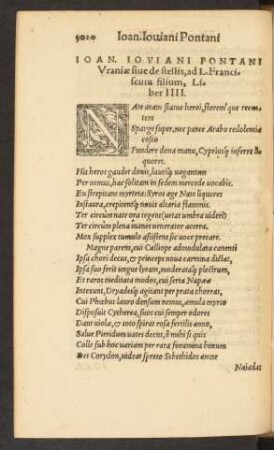 3020 Ioan. Iouiani Pontani
IOAN. IOVIANI PONTANI
Vraniæ siue de stellis, ad L. Franci-
scum filium, Li-
ber IIII.
NAte aram statue heroi, floremq́ue recen-
tem
Sparge super, nec parce Arabo redolentia
costo
Fundere dona manu, Cypriosq́; inferre li-
quores.
His heros gaudet donis, lauriq́; uagantem
Per nemus, hac solitam in sedem mercede uocabis.
En strepitant myrteta: Syros age Nate liquores
Instaura, crepitentq́; nouis altaria flammis.
Ter circùm nate ora tegent (uetat umbra uideri)
Ter circùm plena manes venerator acerra.
Mox supplex tumulo assistens sic uoce precare.
Magne parens, cui Calliope admodulata canenti
Ipsa chori decus, & princeps noua carmina dictat,
Ipsa suo ferit ungue lyram, moderatq́; plectrum,
Et raros meditata modos, cui serta Napææ
Intexunt, Dryadesq́; agitant per prata choreas,
Cui Phœbus lauro densum nemus, æmula myrto
Disposuit Cytherea, suos cui semper odores
Dant uiolæ, & toto spirat rosa fertilis anno,
Salue Pieridum uates decus, & mihi si quis
Colle sub hoc uariam per rara foramina buxum
Det Corydon, uideat spreto Sebethidos amne
Naiadas